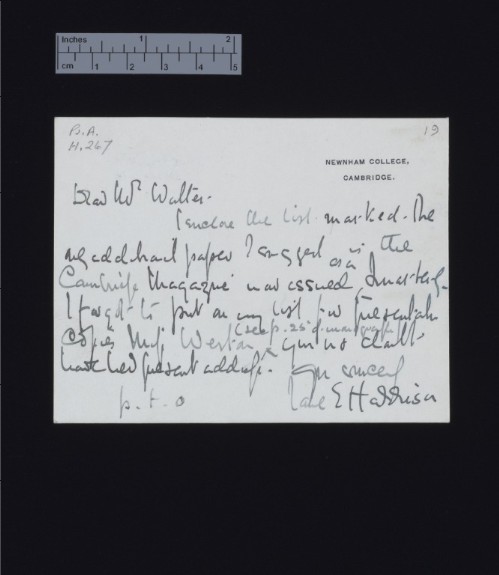 Inches 1 2
cm 1 2 3 4 5
B.A.
H.267
19
NEWNHAM COLLEGE,
CAMBRIDGE.
Dear Mr Walter.
I enclose the list marked. The
only additional paper I suggest is the
Cambridge Magazine now issued
I forgot to put on my list for presentation
(see p. 25 of monograph)
copies Miss Weston you no doubt
have her present address.
Yrs sincerely
p.t.o
Jane E Harrison